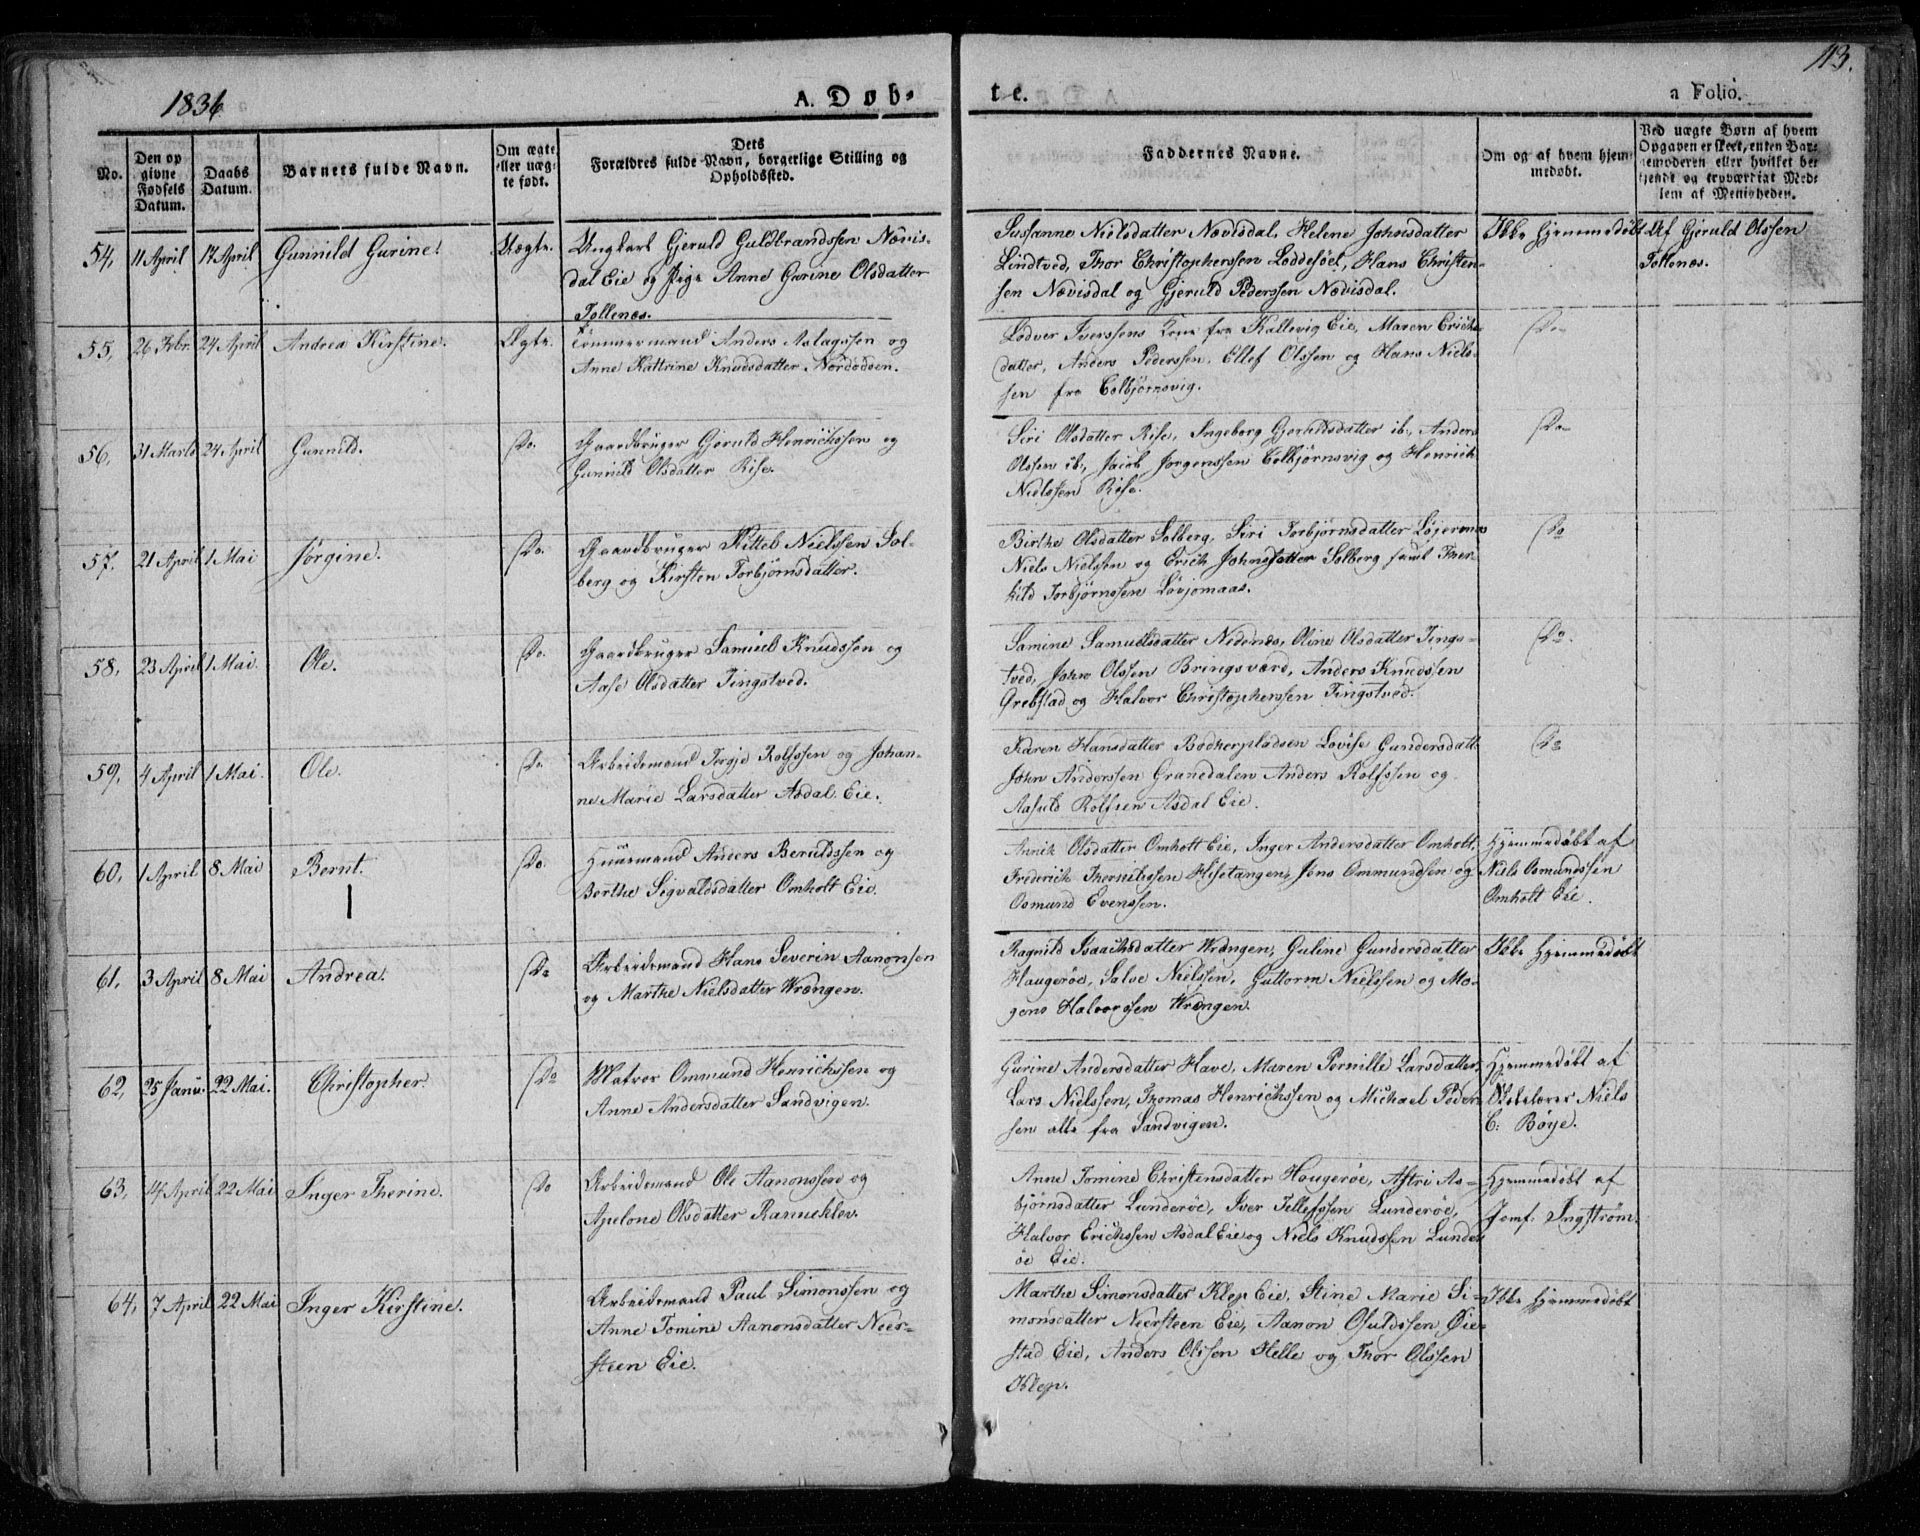 1836
A. Døb-
te.
a Folio.
113.
No.
Den op
givne
Fødsels
Datum.
Daabs
Datum.
Barnets fulde Navn.
Om ægte
eller uæg-
te født.
Dets
Forældres fulde Navn, borgerlige Stilling og
Opholdssted.
Faddernes Navne.
Om og af hvem hjem-
medøbt.
Ved uægte Børn af hvem
Opgaven er skeet, enten Bar-
nemoderen eller hvilket be-
kjendt og troværdigt Med-
lem af Menigheden.
54, 11 April 17 April Gunnild Gurine. Uægte. Ungkarl Gjeruld Guldbrandssen Nævis-
dal Eie og Pige Anne Gurine Olsdatter
Tollenæs.
Susanne Nielsdatter Nævisdal, Helene Johnsdatter
Lindtved, Thor Christopherssen Loddesöel, Hans Christen-
sen Nævisdal og Gjeruld Pederssen Nævisdal.
Ikke hjemmedøbt
Af Gjeruld Olssen
Tollenæs.
55, 26 Febr. 24 April Andrea Kirstine. Ægte. Tömmermand Anders Aslagssen og
Anne Kattrine Knudsdatter Nordodden.
Lodver Iverssens Kone fra Kallevig Eie, Maren Erichs-
datter, Anders Pederssen, Ellef Olssen og Hans Niels-
sen fra Colbjörnsvig.
Do
56, 31 Marts 24 April Gunnild. Do. Gaardbruger Gjeruld Henrichssen og
Gunnild Olsdatter Rise.
Siri Olsdatter Rise, Ingeborg Gjeruldsdatter ib., Anders
Olssen ib., Jacob Jorgenssen Colbjørnsvig og Henrich
Nielssen Rise.
Do
57. 21 April 1 Mai Jørgine. Do. Gaardbruger Kittel Nielssen Sol-
berg og Kirsten Torbjørnsdatter.
Birthe Olsdatter Solberg, Siri Torbjørnsdatter Løjermaas
Niels Nielssen og Erich Johnsdatter Solberg samt Ther-
kild Torbjørnssen Løvjomaas.
Do
58, 23 April 1 Mai. Ole. Do. Gaardbruger Samuel Knudssen og
Aase Olsdatter Tingstved.
Samine Samuelsdatter Nedenæs, Oline Olsdatter Tings-
tved, John Olssen Bringsværd, Anders Knudssen
Ørebstad og Halvor Christopherssen Tingstved.
Do.
59, 4 April 1 Mai. Ole. Do. Arbeidsmand Terje Rolfssen og Johan-
ne Marie Larsdatter Asdal Eie.
Karen Hansdatter Bodkerpladsen Lovise Gundersdatt.
John Anderssen Granedalen Anders Rolfssen og
Aasuld Rolfsen Asdal Eie.
Do
60, 1 April 8 Mai Bernt. Do. Huusmand Anders Beruldssen og
Berthe Sigvaldsdatter Omholt Eie.
Annik Olsdatter Omholt Eie, Inger Andersdatter Omholt,
Frederich Thornilssen Hisetangen, Jens Ommundssen og
Osmund Evenssen.
Hjemmedøbt af
Niels Osmundssen
Omholt Eie.
61, 3 April 8 Mai Andrea. Do Arbeidsmand Hans Severin Aanonsen
og Marthe Nielsdatter Wrengen.
Ragnild Isaachsdatter Wrengen, Guline Gundersdatter
Haugerøe, Salve Nielssen, Guttorm Nielssen og Mo-
gens Halvorssen Wrengen.
Ikke Hjemmedøbt
62, 25 Janu. 22 Mai. Christopher. Do Matros Ommund Henrichssen og
Anne Andersdatter Sandvigen.
Gurine Andersdatter Have, Maren Pernille Larsdatter,
Lars Nielssen, Thomas Henrichssen og Michael Peder-
sen alle fra Sandvigen.
Hjemmedøbt af
Skolelærer Niels
C: Bøye.
63, 14 April 22 Mai Inger Therine. Do Arbeidsmand Ole Aanonssen og
Apelone Olsdatter Rannekleiv.
Anne Tomine Christensdatter Hougerøe, Astri As-
bjørnsdatter Lunderøe, Iver Tellefssen Lunderøe,
Halvor Erichssen Asdal Eie og Niels Knudssen Lunder-
øe Eie.
Hjemmedøbt af
Jomf: Ingstrøm.
64, 7 April 22 Mai Inger Kirstine. Arbeidsmand Paul Simonssen og
Anne Tomine Aanonsdatter Neer-
steen Eie.
Marthe Simonsdatter Klep Eie, Stine Marie Si-
monsdatter Neersteen Eie, Aanon Osuldssen Øie-
stad Eie, Anders Olssen Helle og Thor Olssen
Klep.
Ikke Hjemmedøbt